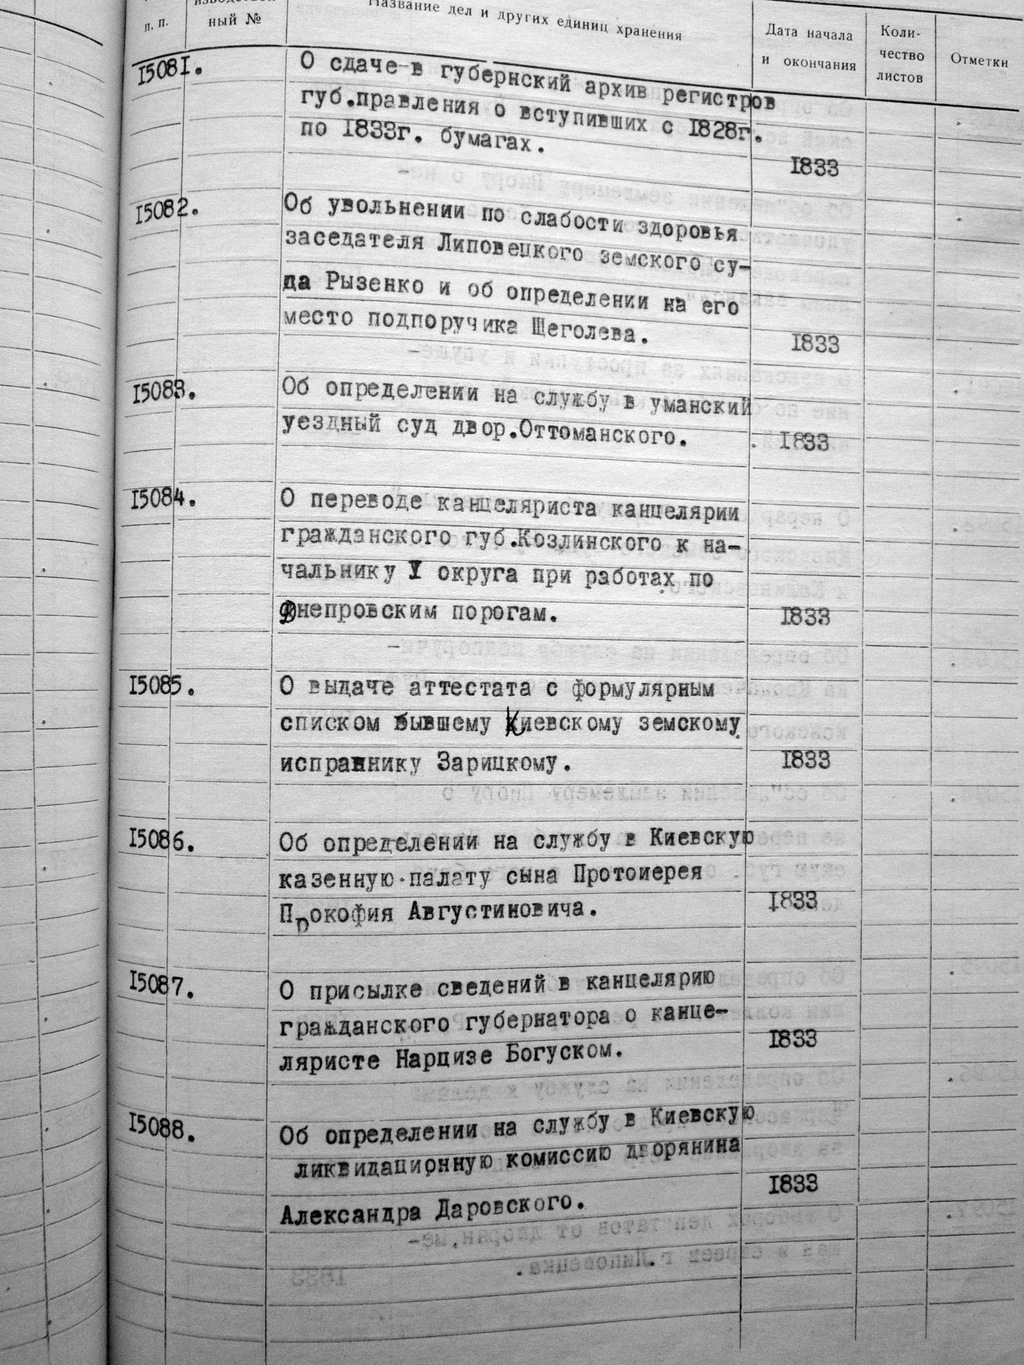 п. п.
ный №
Название дел и других единиц хранения
Дата начала
и окончания
Коли-
чество
листов
Отметки
I5081.
О сдаче в губернский архив регистров
губ.правления о вступивших с I828г.
по I833г. бумагах.
I833
I5082.
Об увольнении по слабости здоровья
заседателя Липовецкого земского су-
да Рызенко и об определении на его
место подпоручика Щеголева.
I833
I5083.
Об определении на службу в уманский
уездный суд двор.Оттоманского.
I833
I5084.
О переводе канцеляриста канцелярии
гражданского губ.Козлинского к на-
чальнику I округа при работах по
Днепровским порогам.
I833
I5085.
О выдаче аттестата с формулярным
списком бывшему Киевскому земскому
исправнику Зарицкому.
I833
I5086.
Об определении на службу в Киевскую
казенную палату сына Протоиерея
Прокофия Августиновича.
I833
I5087.
О присылке сведений в канцелярию
гражданского губернатора о канце-
ляристе Нарцизе Богуском.
I833
I5088.
Об определении на службу в Киевскую
ликвидационную комиссию дворянина
Александра Даровского.
I833